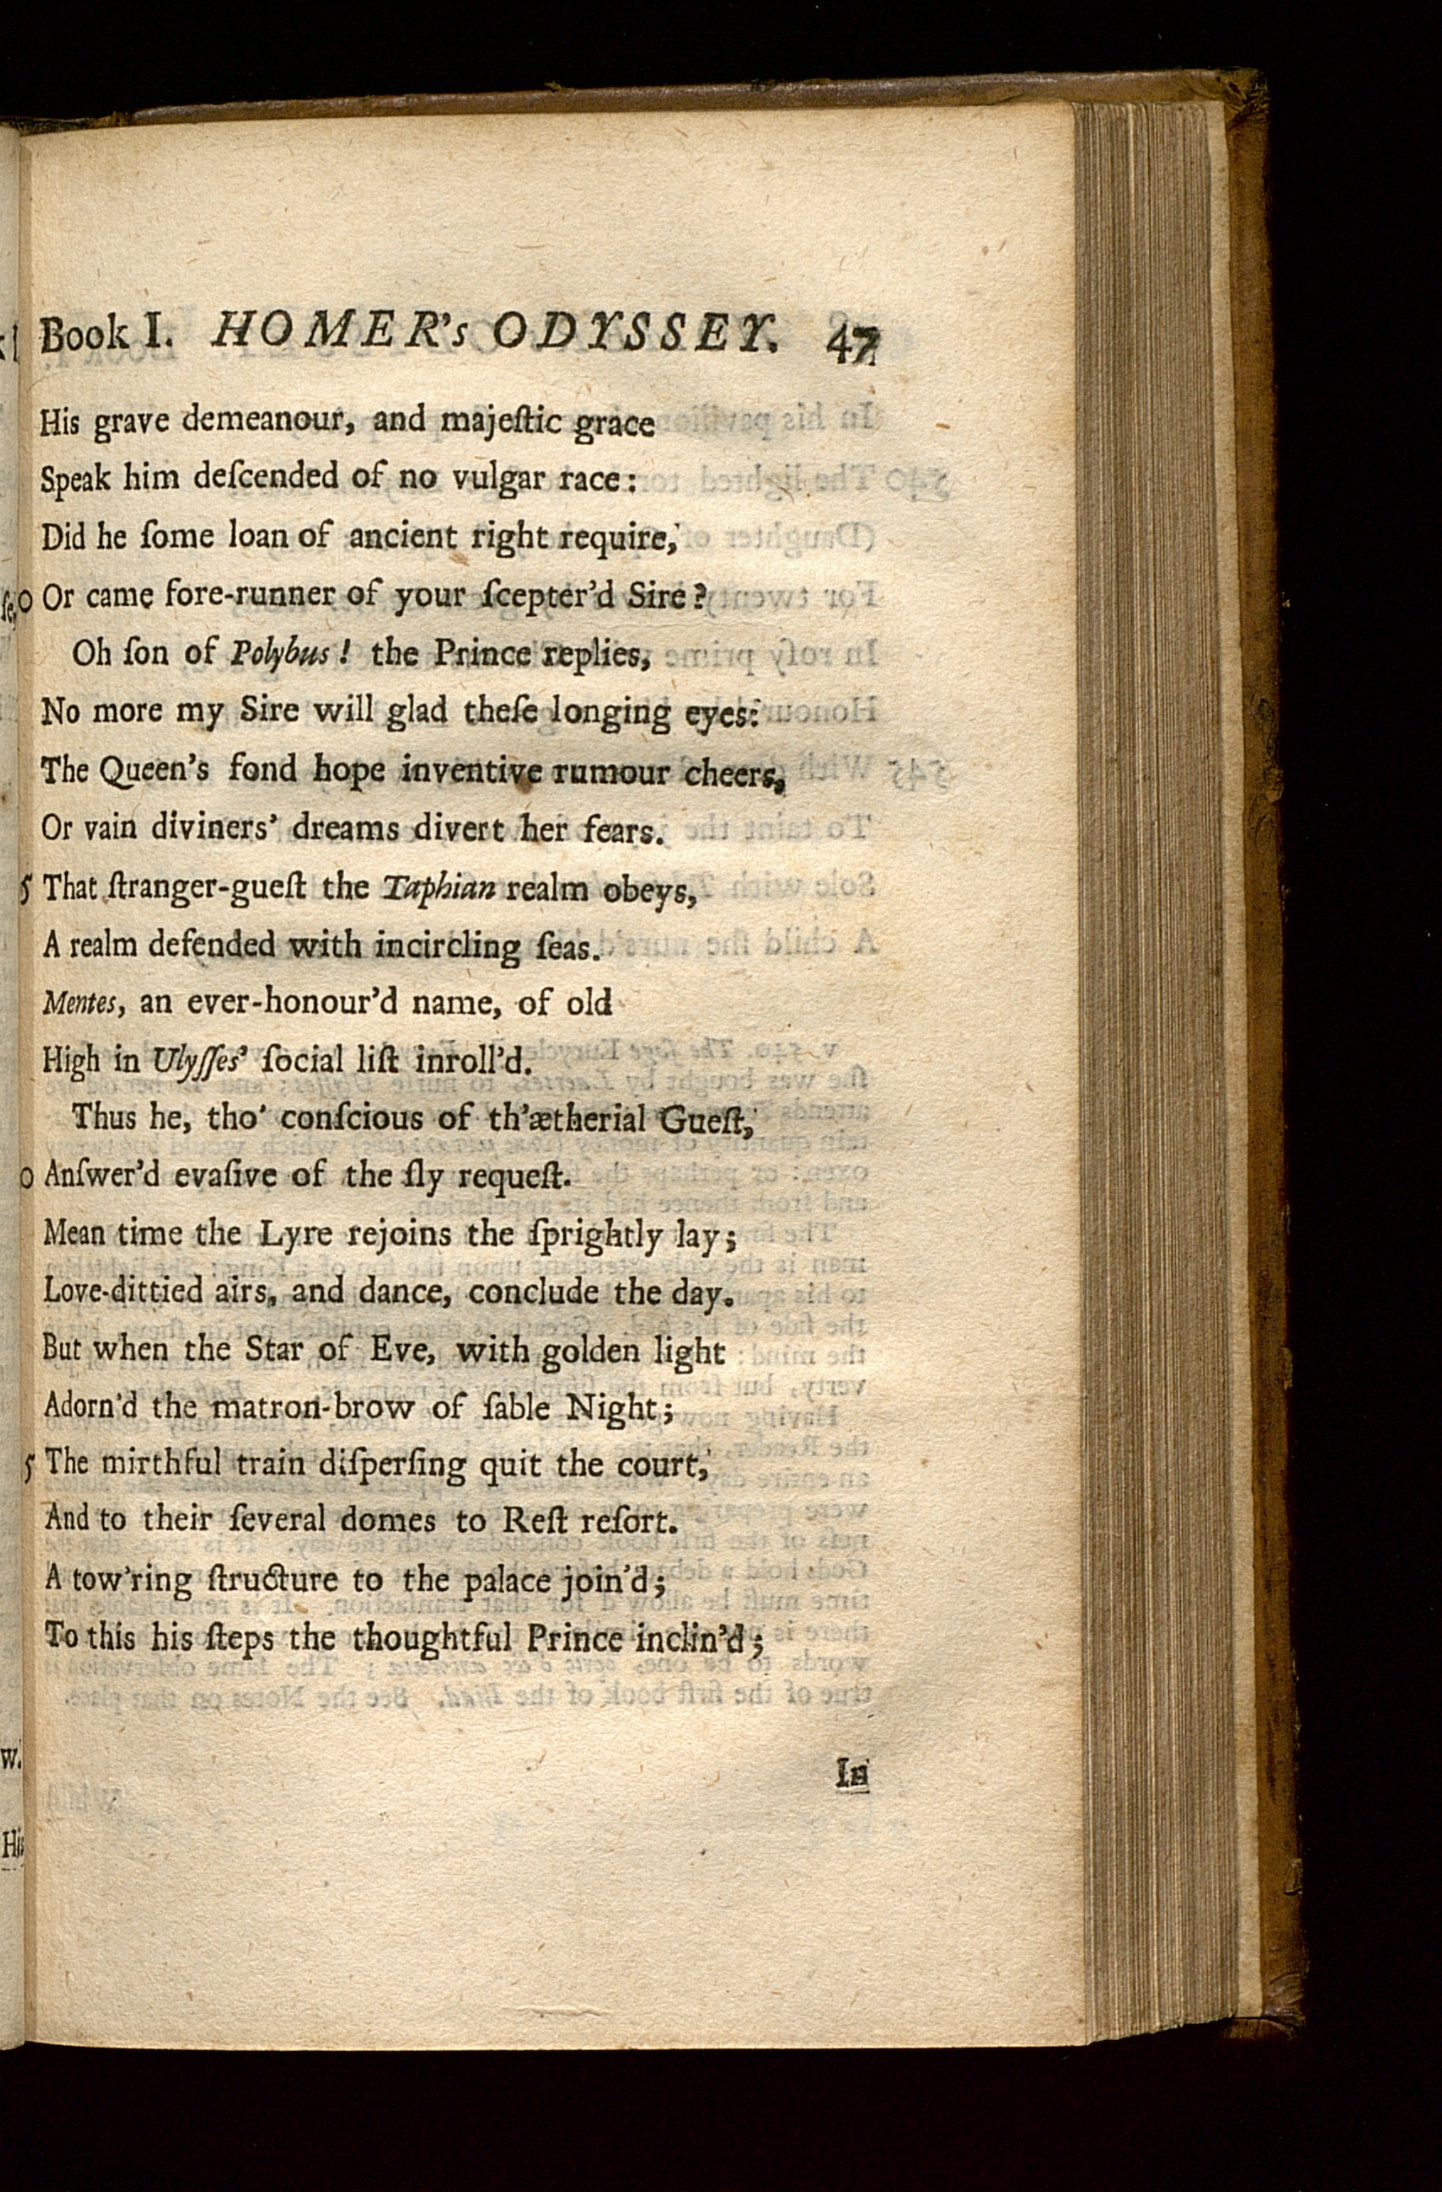 Book I. HOMER's ODYSSEY. 47
His grave demeanour, and majeſtic grace
Speak him deſcended of no vulgar race:
Did he ſome loan of ancient right require,
0 Or came fore-runner of your ſcepter'd Sire?
Oh ſon of Polybus! the Prince replies,
No more my Sire will glad theſe longing eyes:
The Queen's fond hope inventive rumour cheers,
Or vain diviners' dreams divert her fears.
5 That ſtranger-gueſt the Taphian realm obeys,
A realm defended with incircling ſeas.
Mentes, an ever-honour'd name, of old
High in Ulyſſes' ſocial liſt inroll'd.
Thus he, tho' conſcious of th'ætherial Gueſt,
0 Anſwer'd evaſive of the ſly requeſt.
Mean time the Lyre rejoins the ſprightly lay;
Love-dittied airs, and dance, conclude the day.
But when the Star of Eve, with golden light
Adorn'd the matron-brow of ſable Night;
5 The mirthful train diſperſing quit the court,
And to their ſeveral domes to Reſt reſort.
A tow'ring ſtructure to the palace join'd;
To this his ſteps the thoughtful Prince inclin'd;
In